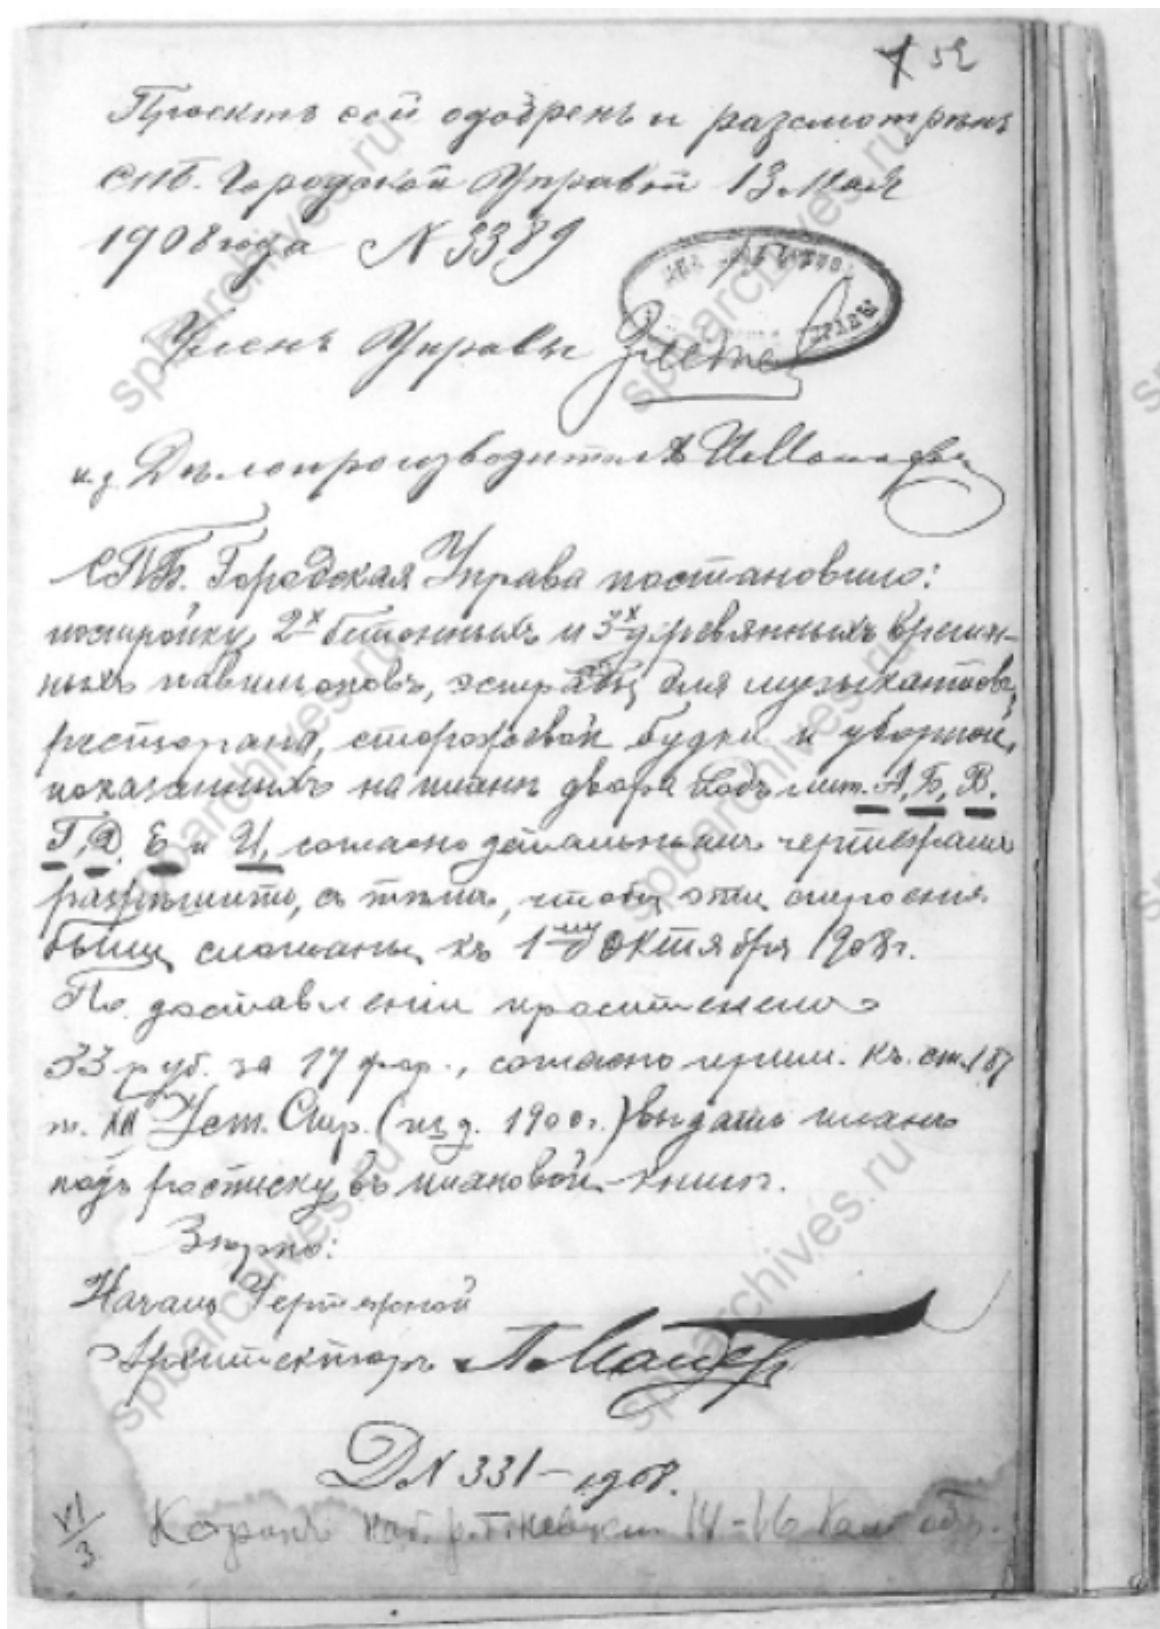 52
Проектъ сей одобренъ и разсмотрѣнъ
СПб. Городской Управой 13 Мая
1908 года N 3389
Членъ Управы
и.д. Дѣлопроизводителя
СПБ. Городская Управа постановила:
постройку 2х бетонныхъ и 3х деревянныхъ времен-
ныхъ павильоновъ, эстрады для музыкантовъ,
ресторана, сторожевой будки и уборной,
показанныхъ на планѣ двора подъ лит. А, Б, В,
Г, Д, Е и И, согласно детальнымъ чертежамъ
разрѣшить, съ тѣмъ, чтобы эти строенія
были сломаны къ 1му Октября 1908 г.
По доставленіи просителемъ
33 руб. за 17 фор., согласно прим. къ ст. 187
т. XII Уст. Стр. (изд. 1900 г.) выдать планъ
подъ росписку въ плановой книгѣ.
Вѣрно:
Началь. Чертежной
Архитекторъ
Д N 331 – 1908.
VI/3
наб. р. Б. Невки 14-16
spbarchives.ru
spbarchives.ru
spbarchives.ru
spbarchives.ru
spbarchives.ru
spbarchives.ru